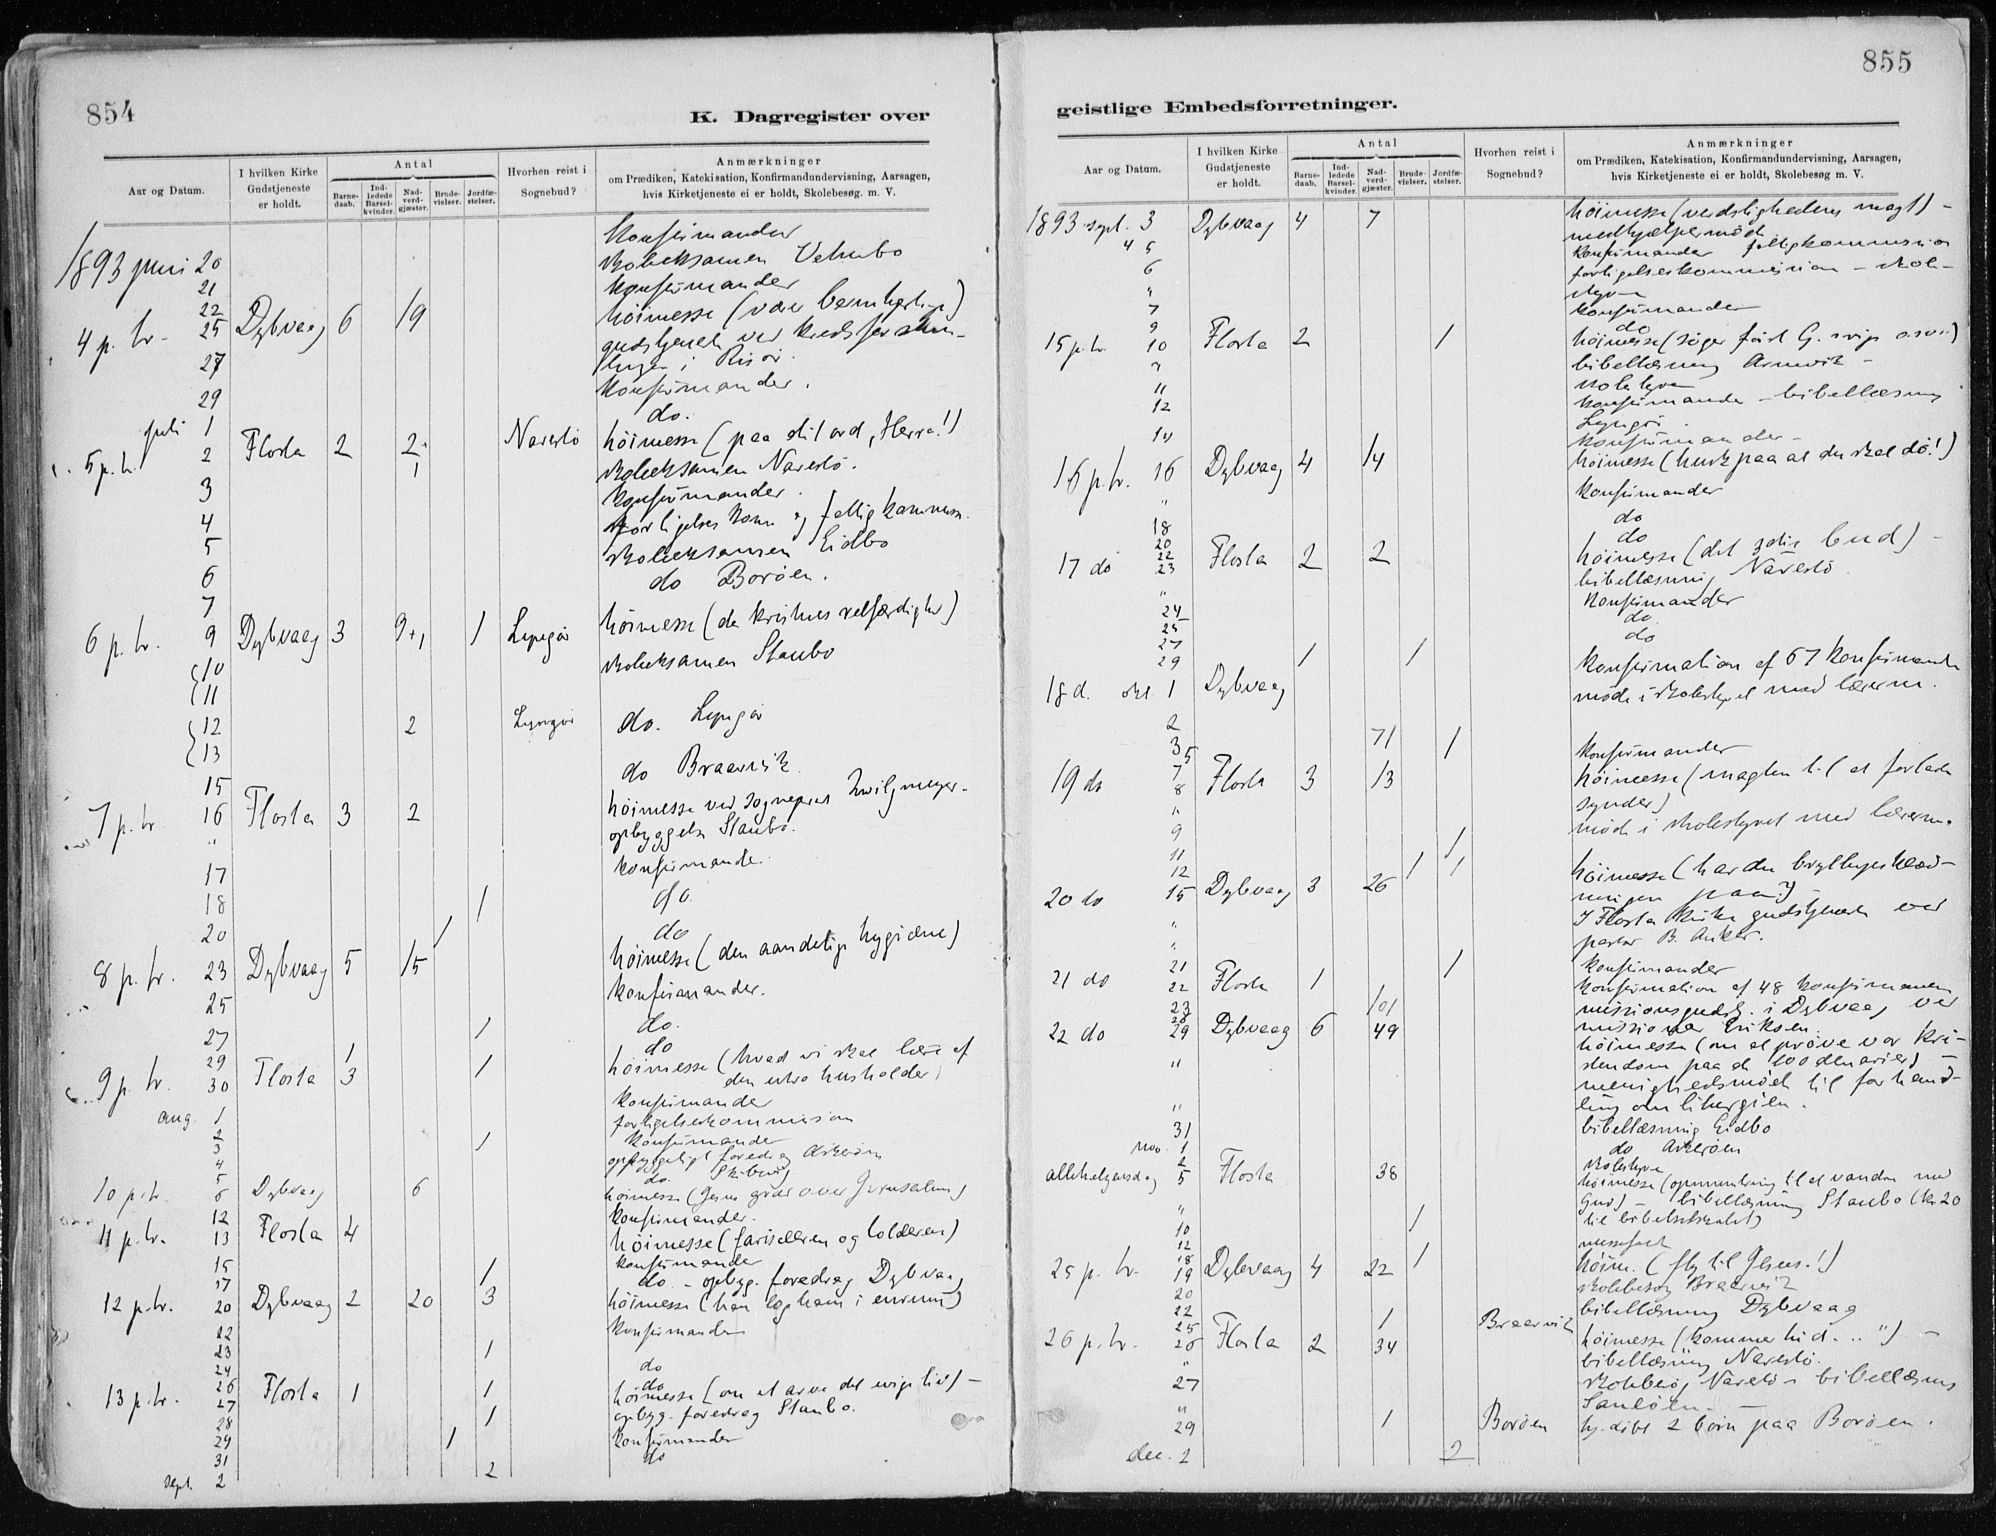 854
K. Dagregister over
Aar og Datum.
I hvilken Kirke Gudstjeneste er holdt.
Antal
Barne-daab.
Ind-ledede Barsel-kvinder.
Nad-verd-gjæster.
Brude-vielser.
Jordfæ-stelser.
Hvorhen reist i Sognebud?
Anmærkninger
om Prædiken, Katekisation, Konfirmandundervisning, Aarsagen,
hvis Kirketjeneste ei er holdt, Skolebesøg. m. V.
Konfirmander
1893 juni 20 skoleeksamen
21 Konfirmander
22
4 p. tr. 25 Dybvaag 6 19 høimesse (vær barmhjertige)
27 gudstjeneste ved kredsforsam-
lingen i Risør.
Konfirmander.
29 do.
juli 1
5 p. tr. 2 Flosta 2 2 1 Narestø høimesse (paa dit ord, Herre!)
3 skoleeksamen Narestø.
4 Konfirmander.
5 forligelses kom og fattigkommis.
6 skoleeksamen Eidbo
7 do Borøen.
6 p. tr. 9 Dybvaag 3 9+1 1 Lyngør høimesse
10 skoleeksamen Staubo
11
12 2 Lyngør do. Lyngør
13
15 do Braarvik
7 p. tr. 16 Flosta 3 2 høimesse ved sognepræst
" opbyggelse Staubo.
17 konfirmander.
18 1 do.
20 1 do
8 p. tr. 23 Dybvaag 5 15 høimesse (den aandelige hygiæne)
25 konfirmander.
27 1 do.
29 1 do
9 p. tr. 30 Flosta 3 1 høimesse (hvad vi skal lære af
den utro husholder)
aug. 1 konfirmander
2 forligelseskommission
3 1 konfirmander
4 opbyggeligt foredrag Askerøen
5 do.
10 p. tr. 6 Dybvaag 6 høimesse (Jesus græder over Jerusalem)
12 konfirmander.
11 p. tr. 13 Flosta 4 høimesse (farisæeren og tolderen)
15 konfirmander
17 1 do. - opbyg. foredrag Dybvaag
12 p. tr. 20 Dybvaag 2 20 3 høimesse (han tog ham i enrum)
22 konfirmander
23 1
24 do
13 p. tr. 26 do
27 Flosta 1 1 høimesse (om at arve det evige liv) -
28 1 opbyg. foredrag Staubo.
29 1 konfirmander
31 do
sept. 2 2
855
geistlige Embedsforretninger.
Aar og Datum.
I hvilken Kirke Gudstjeneste er holdt.
Antal
Barne-daab.
Ind-ledede Barsel-kvinder.
Nad-verd-gjæster.
Brude-vielser.
Jordfæ-stelser.
Hvorhen reist i Sognebud?
Anmærkninger
om Prædiken, Katekisation, Konfirmandundervisning, Aarsagen,
hvis Kirketjeneste ei er holdt, Skolebesøg m. V.
1893 sept. 3 Dybvaag 4 7 høimesse (verdslighedens magt) -
medhjælpermøde
4 5 konfirmander fattigkommission
6 forligelseskommission - skole-
" styre
7 konfirmander
9 do
15 p. tr. 10 Flosta 2 1 høimesse (søger først G. rige osv.)
" bibellæsning Arnevik -
11 skolestyre
12 konfirmander - bibellæsning
Lyngør.
14 konfirmander -
16 p. tr. 16 Dybvaag 4 14 høimesse (husk paa at du skal dø!)
" konfirmander
18 do
20 do
22
17 do 23 Flosta 2 2 høimesse (det bud) -
" bibellæsning Narestø
24 konfirmander
25 do.
27 do
29 1 1
18 d. okt 1 Dybvaag konfirmation af 67 konfirmander
2 møde i skolestyret med lærerne.
3 71 1
5 konfirmander
7
19 do 8 Flosta 3 13 høimesse (magten til at forlade
" synder)
9 1 møde i skolestyret med lærerne.
11 1
12 1
20 do 15 Dybvaag 3 26 høimesse (har du bryllupsklæd-
ningen paa?)
" I Flosta kirke gudstjeneste ved
pastor B. Anker.
21 1 konfirmander
21 do 22 Flosta 1 konfirmation af 48 konfirmander
23 101 missionsgudstj. i Dybvaag ved
28 missionær Eriksen.
22 do 29 Dybvaag 6 49 høimesse (om at prøve vor kri-
stendom paa de 100 denarier) -
" menighedsmøde til forhand-
ling om liturgien.
31 bibellæsning Eidbo
nov. 1 do Askerøen
2 skolestyre
allehelgensdag 5 Flosta 38 høimesse (opmuntring til at vandre med
" Gud) - bibellæsning Staubo
10 1
12
18 1
25 p. tr. 19 Dybvaag 4 22 høim. (fly til Jesus!)
20 skolebesøg Braarvik
22 bibellæsning Dybvaag
25 1 Braarvik
26 p. tr. 26 Flosta 2 34 høimesse (kommer hid...") -
" bibellæsning Narestø.
27 skolebesøg Narestø - bibellæsning
"
29 1 Borøen hj. døbt 2 børn paa Borøen.
dec. 2 2